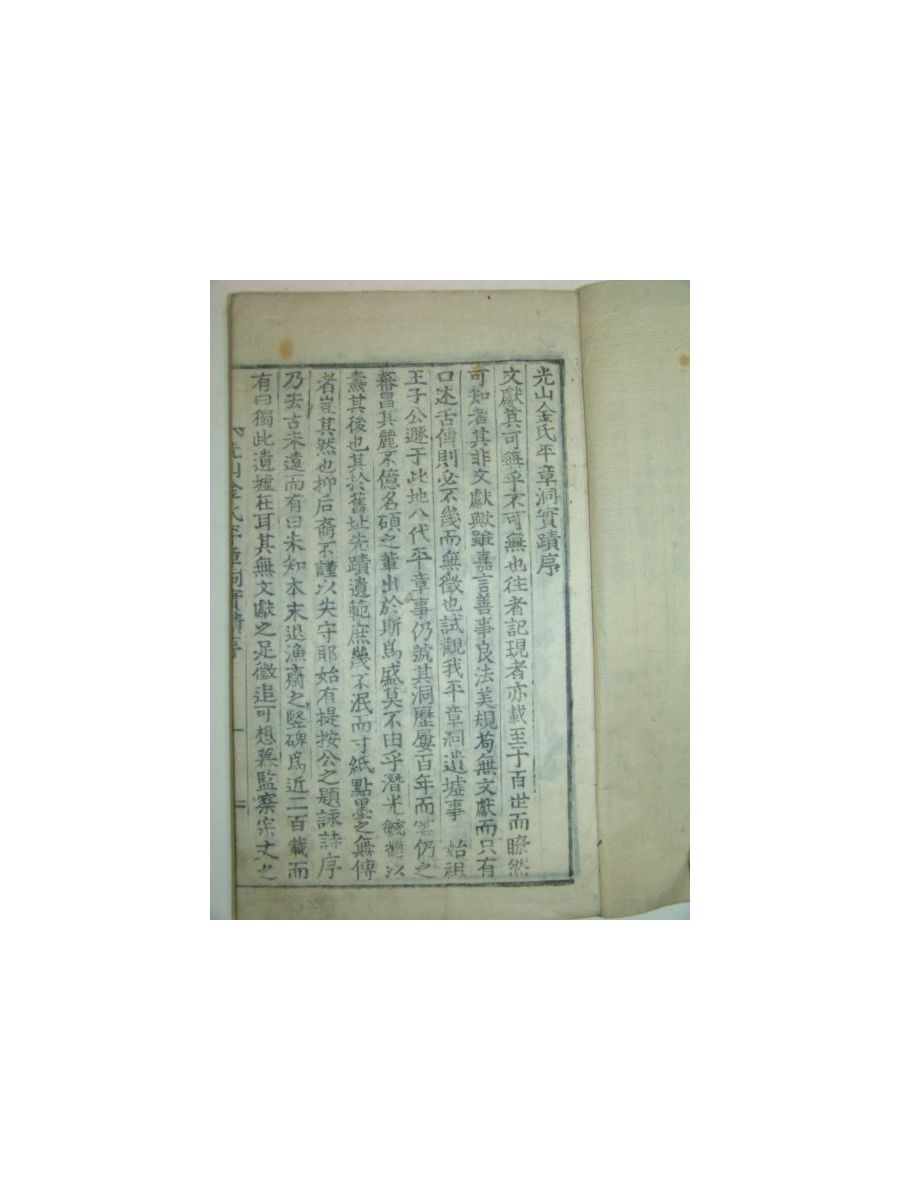 光山金氏平章洞實蹟序
文獻其可無乎不可無也往者記現者亦載至于百世而瞭然
可知者其非文獻歟雖嘉言善事良法美規苟無文獻而只有
口述舌傳則必不幾而無徵也試觀我平章洞遺墟事 始祖
王子公遯于此地八代平章事仍號其洞歷屢百年而雲仍之
蕃昌其麗不億名碩之輩出於斯爲盛莫不由乎潛光毓德以
燾其後也其於舊址先蹟遺範庶幾不泯而寸紙點墨之無傳
者豈其然也抑后裔不謹以失守耶始有提按公之題詠詩序
乃去古未遠而有曰未知本末退漁齋之竪碑爲近二百載而
有曰獨此遺墟在耳其無文獻之足徵追可想矣監察宗丈
光山金氏平章洞實蹟序